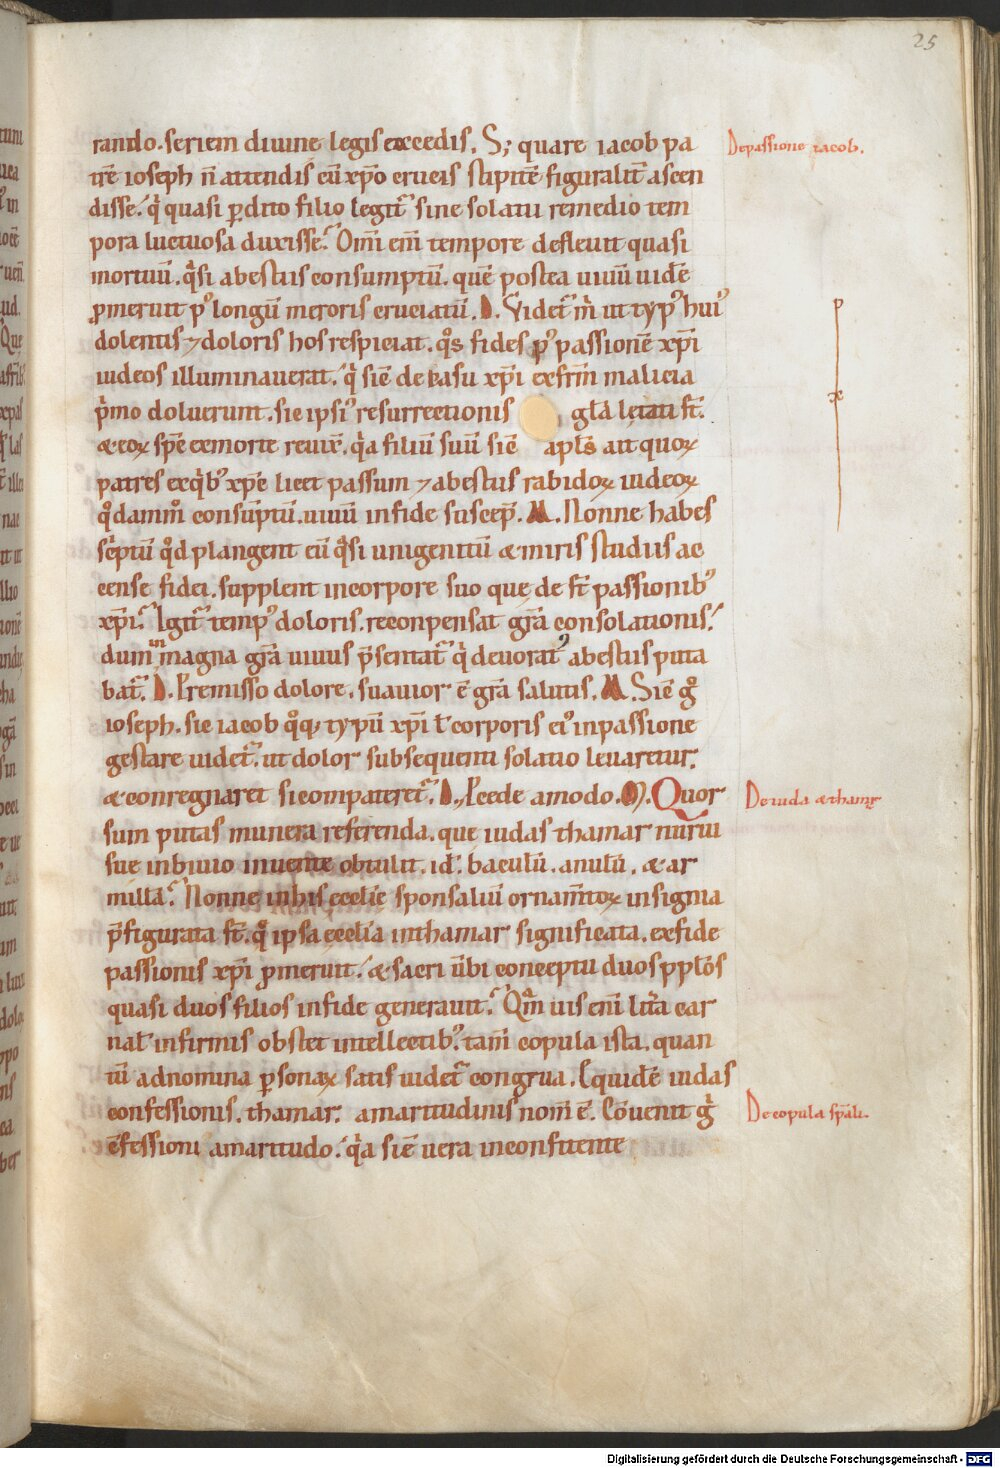 25
rando. seriem diuine legis excedis. S; quare iacob pa
trē ioseph n̄ attendis cū xp̄o crucis stipitē figuralit̄ ascen
disse. q̓ quasi ꝑdito filio legit᷑ sine solatii remedio tem
pora luctuosa duxisse. Om̄i em̄ tempore defleuit quasi
mortuū. q̓si abestiis consumptū. quē postea uiuū uidē
ꝑmeruit pꝰ longū meroris cruciatū. D. Videt᷑ m̓ ut typꝰ huiꝰ
dolentis ⁊ doloris hos respiciat. q̊s fides pꝰ passionē xp̄i
iudeos illuminauerat. q̓ sic̄ de casu xp̄i ex frm̄ malicia
p̓mo doluerunt. sic ipsiꝰ resurrectionis gl̄a lętati st̄.
& eoꝝ spē ex morte reuix̄. q̓a filiū suū sic̄ apl̄s ait quoꝝ
patres ex q̓bꝰ xp̄c licet passum ⁊ abestiis rabidoꝝ iudeoꝝ
q̊dammō consūptū. uiuū in fide suscep̄. M. Nonne habes
sc̓ptū q̊d plangent eū q̓si unigenitū & miris studiis ac
cense fidei. supplent in corpore suo quę de st̄ passionibꝰ
xp̄i. Igit᷑ tempꝰ doloris. reconpensat gr̄a consolationis.
dum in magna gr̄a uiuus p̄sentat᷑ q̓ deuoratꝰ abestiis puta
bat᷑. D. Premisso dolore. suauior ē gr̄a salutis. M. Sic̄ g̊
ioseph. sic iacob q̊q; typū xp̄i ł corporis eiꝰ in passione
gestare uidet᷑. ut dolor subsequenti solatio leuaretur.
& conregnaret si compateret᷑. D. Accede amodo. M. Quor
sum putas munera referenda. que iudas thamar nurui
sue in biuio inuente obtulit. id. baculū. anulū. & ar
millā. Nonne in his ecclie sponsaliū ornam̄toꝝ insignia
p̄figurata st̄. q̓ ipsa ecclia in thamar significata. ex fide
passionis xp̄i ꝑmeruit. & sacri ūbi conceptu duos pplōs
quasi duos filios in fide generauit. Qm̄ uis eni lītra car
nal̓ infirmis obstet intellectibꝰ. tam̄ copula ista. quan
tū ad nomina ꝑsonaꝝ satis uidet᷑ congrua. Equidē iudas
confessionis. thamar. amaritudinis nom̄ ē. Cōuenit g̓
c̄fessioni amaritudo. q̓a sic̄ uera in confitente
De passione iacob.
p
x
De iuda & thamar
De copula sp̄ali.
Digitalisierung gefördert durch die Deutsche Forschungsgemeinschaft - DFG